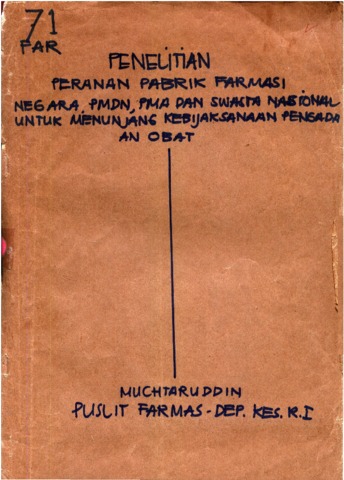 71
FAR
PENELITIAN
PERANAN PABRIK FARMASI
NEGARA, PMDN, PMA DAN SWASTA NASIONAL
UNTUK MENUNJANG KEBIJAKSANAAN PENGADA
AN OBAT
MUCHTARUDDIN
PUSLIT FARMAS - DEP. KES. R.I